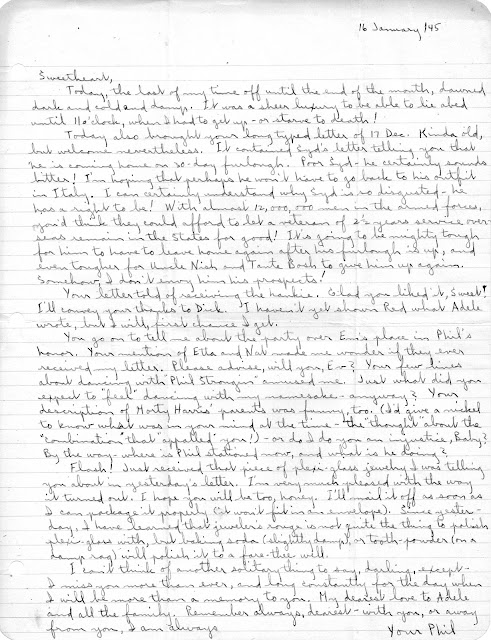 16 January '45
Sweetheart,
Today, the last of my time off until the end of the month, dawned
dark and cold and damp. It was a sheer luxury to be able to lie abed
until 11 o'clock, when I had to get up - or starve to death!
Today also brought your long typed letter of 17 Dec. Kinda old,
but welcome nevertheless. It contained Syd's letter telling you that
he is coming home on 30-day furlough. Poor Syd - he certainly sounds
bitter! I'm hoping that perhaps he won't have to go back to his outfit
in Italy. I can certainly understand why Syd is so disgusted - he
has a right to be! With almost 12,000,000 men in the armed forces,
you'd think they could afford to let a veteran of 2½ years service over-
seas remain in the States for good! It's going to be mighty tough
for him to have to leave home again after his furlough is up, and
even tougher for Uncle Nish and Tante Bosh to give him up again.
Somehow, I don't envy him his prospects!
Your letter told of receiving the hankie. Glad you liked it, Sweet!
I'll convey your thanks to Dick. I haven't yet shown Red what Adele
wrote, but I will, first chance I get.
You go on to tell me about the party over Em's place in Phil's
honor. Your mention of Etta and Nat made me wonder if they ever
received my letter. Please advise, will you, Ev? Your few lines
about dancing with Phil Strongin amused me. Just what did you
expect to "feel" dancing with my namesake - anyway? Your
description of Morty Harris' parents was funny, too. (I'd give a nickel
to know what was in your mind at the time - the "thought" about the
"combination" that "appalled" you!) - or do I do you an injustice, Baby?
By the way - where is Phil stationed now, and what is he doing?
Flash! Just received that piece of plexi-glass jewelry I was telling
you about in yesterday's letter. I'm very much pleased with the way
it turned out. I hope you will be too, honey. I'll mail it off as soon as
I can package it properly (it won't fit in an envelope). Since yester-
day, I have learned that jeweler's rouge is not quite the thing to polish
plexi-glass with, but baking soda (slightly damp) or tooth-powder (on a
damp rag) will polish it to a fare-thee-well.
I can't think of another solitary thing to say, darling, except -
I miss you more than ever, and long constantly for the day when
I will be more than a memory to you. My dearest love to Adele
and all the family. Remember always, dearest - with you, or away
from you, I am always
Your Phil